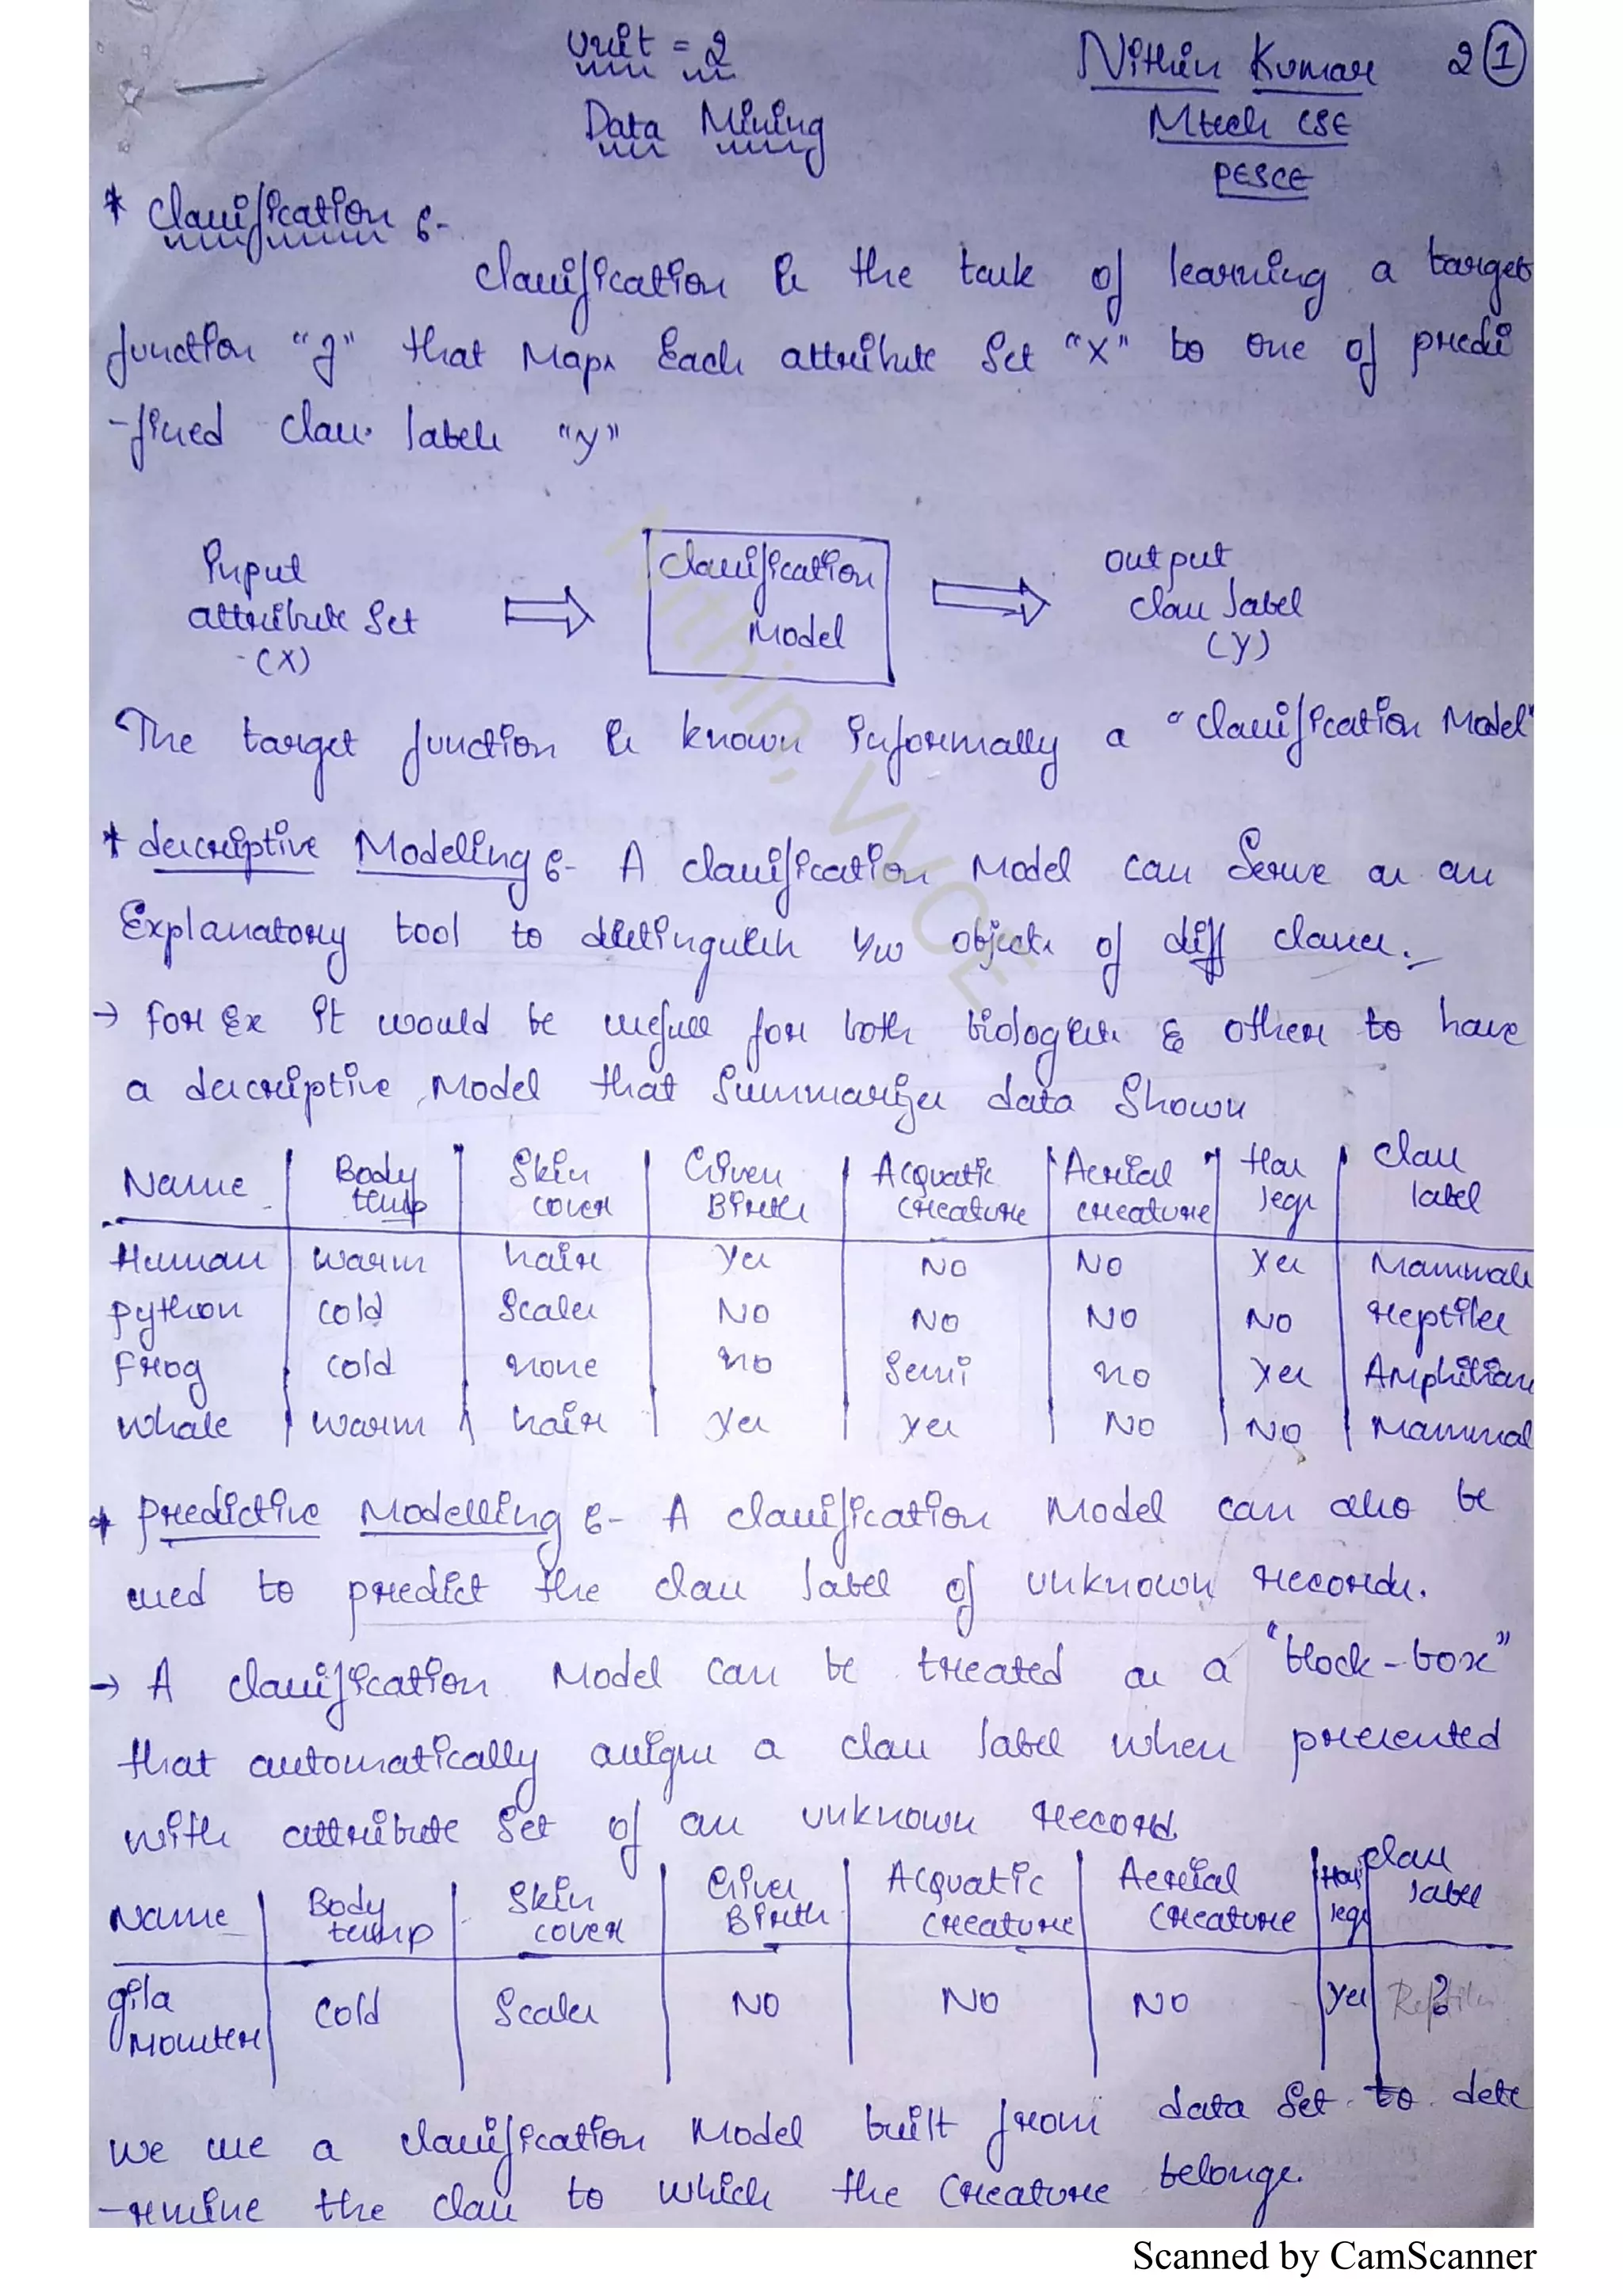 Unit = 2
Nithin Kumar 2 ①
Data Mining
Mtech CSE
PESCE
* Classification :-
Classification is the task of learning a target
function "f" that Maps Each attribute Set "X" to one of predi
-fined class labels "y"
Input
attribute Set
(X)
Classification
Model
output
class label
(y)
The target function is known informally a "Classification Model"
* descriptive Modeling :- A classification Model can Serve as an
Explanatory tool to distinguish b/w objects of diff classes.
→ for Ex it would be usefull for both biologists & others to have
a descriptive Model that Summarizes data Shown
Name | Body temp | Skin cover | Gives Birth | Acquatic creature | Aerial creature | Has legs | Class label
Human | warm | hair | Yes | No | No | Yes | Mammals
python | cold | Scales | No | No | No | No | reptiles
Frog | cold | none | no | Semi | no | Yes | Amphibians
whale | warm | hair | Yes | Yes | No | No | Mammal
* predictive Modelling :- A classification Model can also be
used to predict the class label of unknown records.
→ A classification Model can be treated as a "block-box"
that automatically assigns a class label when presented
with attribute Set of an unknown record.
Name | Body temp | Skin cover | Gives Birth | Acquatic creature | Aerial creature | Has legs | class label
gila monster | cold | Scales | NO | NO | NO | Yes | Reptiles ?
we use a classification Model built from data Set to dete
-rmine the class to which the creature belongs.
Nithin, VVCE
Scanned by CamScanner